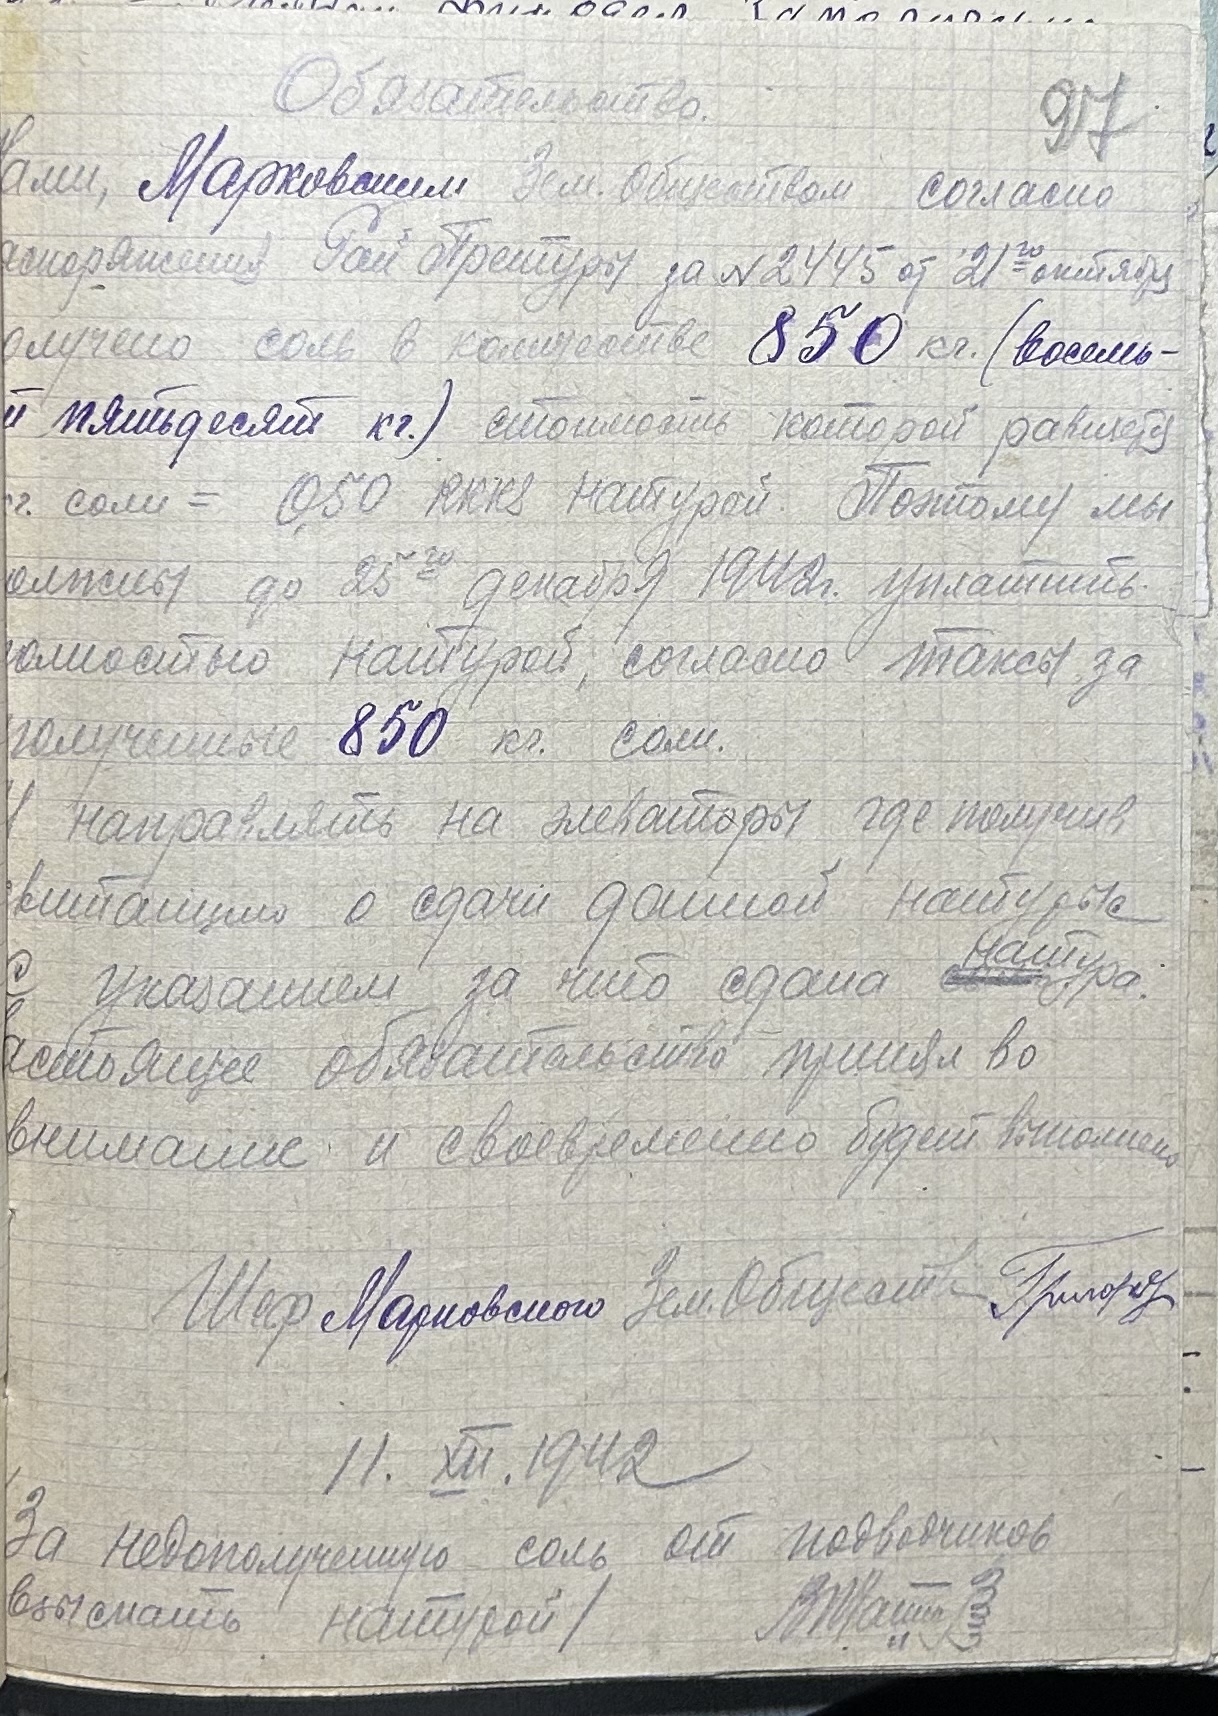 Обязательство.
97
Нами, Марковским Зем. Обществом согласно
аспоряжения Рай Претуры за N 2445 от 21го октября
олучено соль в количестве 850 кг. (восемь-
й пятьдесят кг.) стоимость которой равняется
г. соли = 0,50 RKKS натурой. Поэтому мы
олжны до 25го декабря 1942г. уплатить
олностью натурой, согласно таксы за
полученные 850 кг. соли.
И направлять на элеваторы где получив
квитанцию о сдачи данной натуры
с указанием за что сдана натура.
астоящее обязательство принял во
внимание и своевременно будет выполнено
Шеф Марковского Зем. Обществ
11. XII. 1942
За недополученную соль от подводчиков
взыскать натурой